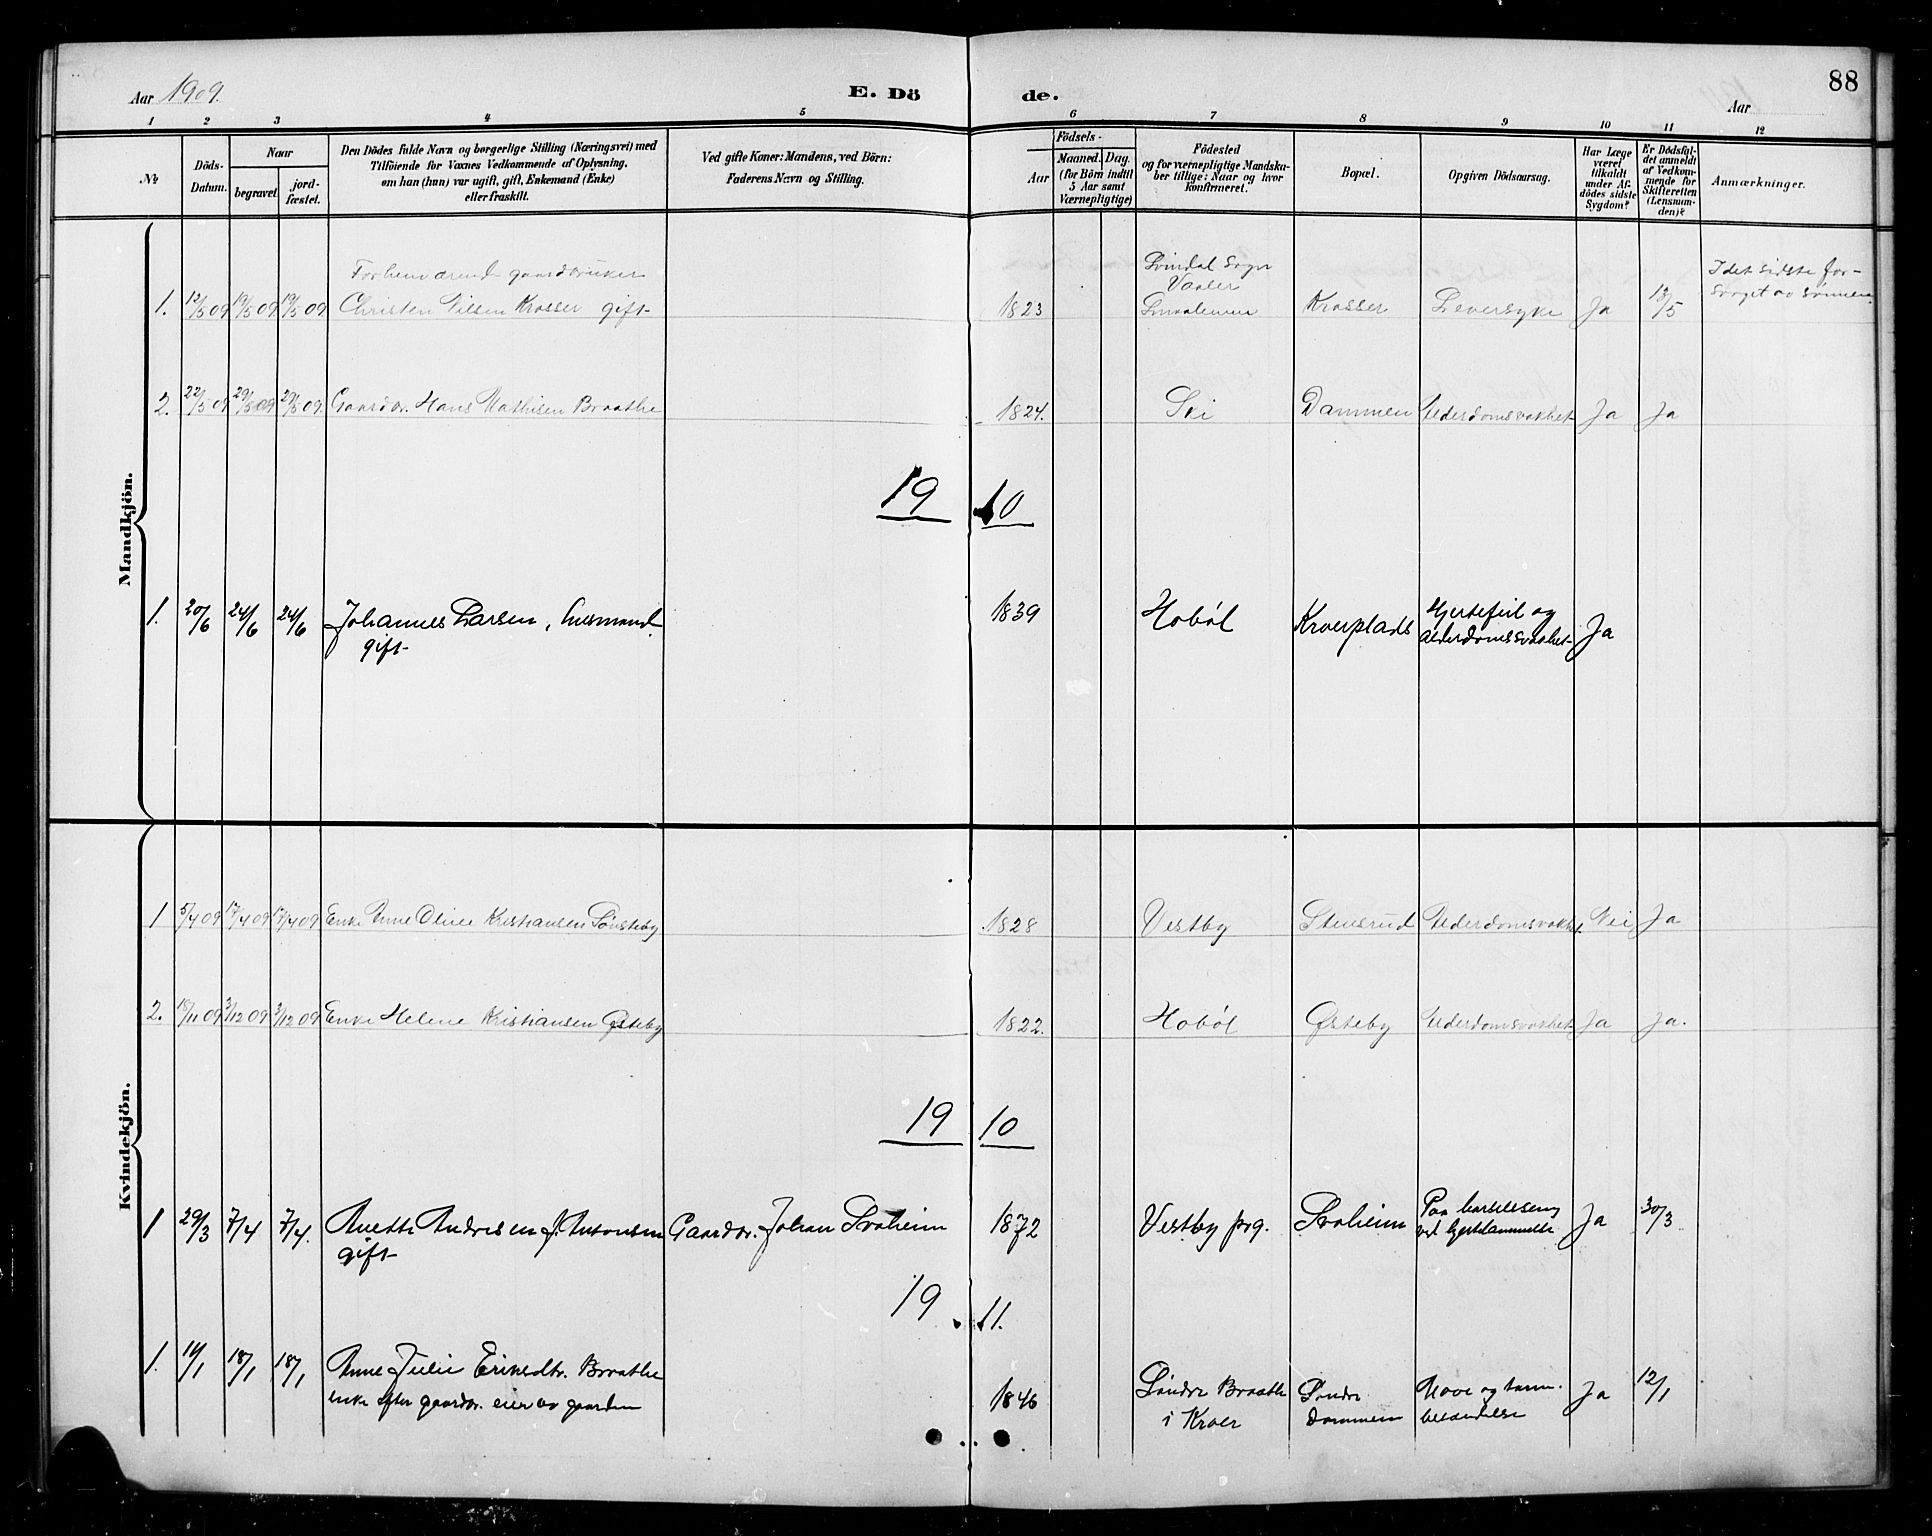 Aar 1909.
E. Döde.
Aar
88
1 2 3 4 5 6 7 8 9 10 11 12
№
Döds-Datum.
Naar
begravet
jordfæstet.
Den Dödes fulde Navn og borgerlige Stilling (Næringsvei) med
Tilföiende for Voxnes Vedkommende af Oplysning,
om han (hun) var ugift, gift, Enkemand (Enke)
eller fraskilt.
Ved gifte Koner: Mandens, ved Börn:
Faderens Navn og Stilling.
Födsels-
Aar
Maaned. Dag.
(for Börn indtil
5 Aar samt
Værnepligtige)
Födested
og for værnepligtige Mandska-
ber tillige: Naar og hvor
konfirmeret.
Bopæl.
Opgiven Dödsaarsag.
Har Læge
været
tilkaldt
under Af-
dödes sidste
Sygdom?
Er Dödsfal-
det anmeldt
af Vedkom-
mende for
Skifteretten
(Lensman-
den)?
Anmærkninger.
Mandkjön.
Forhenværende gaardbruker
1. 12/5 09 19/5 09 19/5 09 Christen Nilsen Krosser gift 1823 Svindal Sogn Vaaler Smaalenene Krosser Leversyke Ja 13/5 I det sidste for-
sørget av sønnen
2. 22/5 09 29/5 09 29/5 09 Gaardbr. Hans Mathisen Braathe 1824. Ski Dammen Alderdomsvakhet Ja Ja
1910
1. 20/6 24/6 24/6 Johannes Larsen, husmand 1839 Hobøl Kroerplads Hjertefeil og Ja
gift alderdomssvakhet
Kvindekjön.
1 5/4 09 17/4 09 17/4 09 Enke Anne Oline Kristiansen Sønsteby 1828 Vestby Stensrud Alderdomsvakhet Nei Ja
2. 18/11 09 3/12 09 3/12 09 Enke Helene Kristiansen Østeby 1822. Hobøl Østeby Alderdomsvakhet Ja Ja.
1910
1 29/3 7/4 7/4 Anette Andresen f. Antonsen Gaardbr. Johan Froheim 1872 Vestby prg. Froheim Paa barselseng Ja 30/3
gift ved
1911.
1. 14/1 18/1 18/1 Anne Julie Eriksdtr. Braathe 1846 Søndre Braathe Søndre Mave og tarm- Ja 12/1
enke efter gaardbr. eier av gaarden i Kroer Dammen betændelse